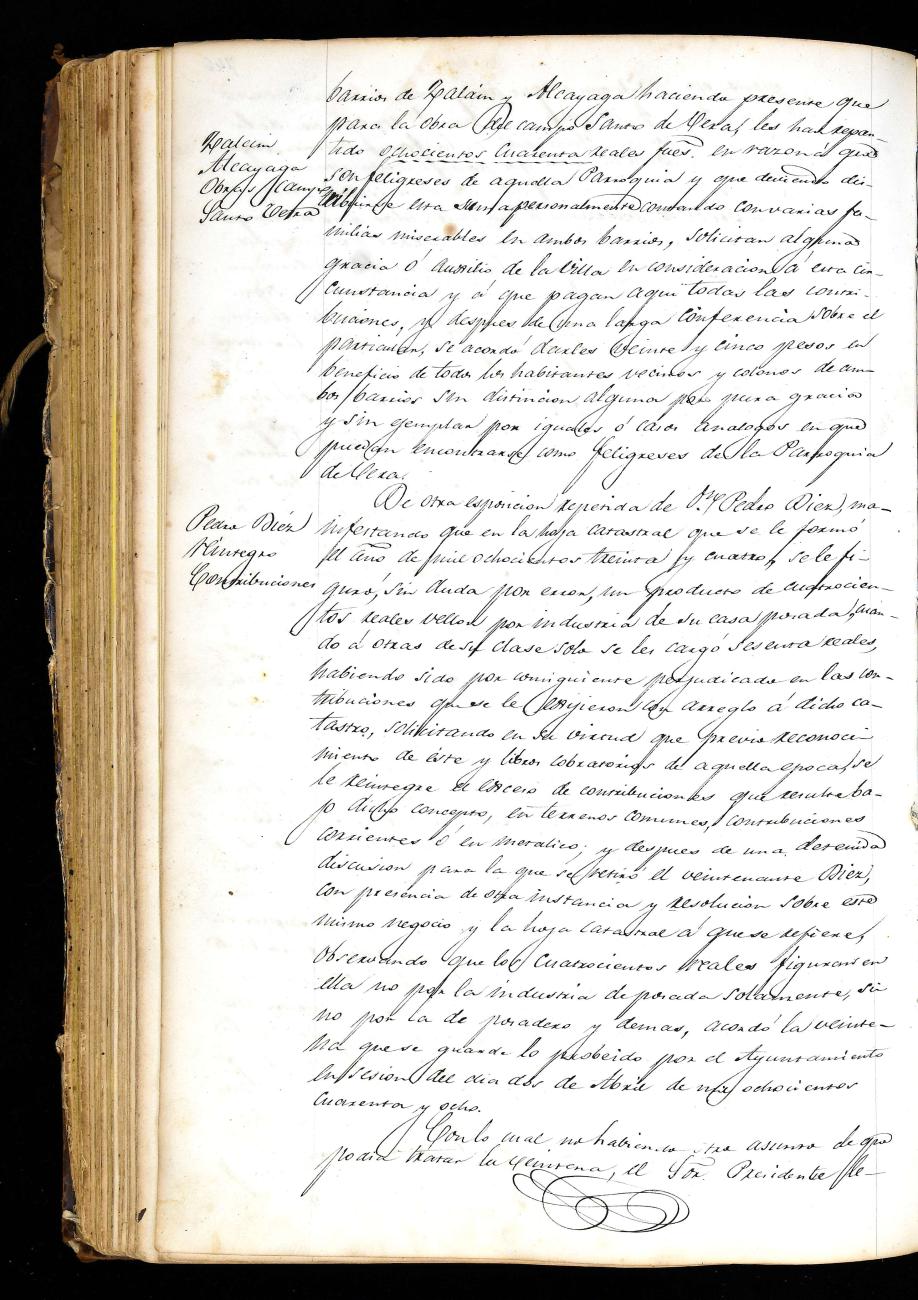 barrios de Zalain y Alcayaga haciendo presente que
para la obra del campo Santo de Vera, les han repar-
Zalain
Alcayaga
Obras campo
Santo Vera
tido ochocientos cuarenta reales fues. en razon á que
son feligreses de aquella Parroquia y que deviendo dis-
tribuirse esta suma personalmente contando con varias fa-
milias miserables en ambos barrios, solicitan alguna
gracia ó auxilio de la Villa en consideracion á esta cir-
cunstancia y á que pagan aqui todas las contri-
buciones, y despues de una larga conferencia sobre el
particular, se acordó darles veinte y cinco pesos en
beneficio de todos los habitantes vecinos y colonos de am-
bos barrios sin distincion alguna por pura gracia
y sin ejemplar por iguales ó casos analogos en que
puedan encontrarse como feligreses de la Parroquia
de Vera.
Pedro Diéz
reintegro
Contribuciones
De otra esposicion repetida de Dn. Pedro Diez, ma-
nifestando que en la hoja catastral que se le formó
el año de mil ochocientos treinta y cuatro, se le fi-
guró, sin duda por error, un producto de cuatrocien-
tos reales vellon por industria de su casa posada, cuan-
do á otras de su clase solo se les cargó sesenta reales,
habiendo sido por consiguiente perjudicado en las con-
tribuciones que se le exijieron con arreglo á dicho ca-
tastro, solicitando en su virtud que previo reconoci-
miento de éste y libros cobratorios de aquella epoca, se
le reintegre el exceso de contribuciones que resulte ba-
jo dicho concepto, en terrenos comunes, contribuciones
corrientes ó en metalico; y despues de una detenida
discusion para la que se retiró el veintenante Diez,
con presencia de otra instancia y resolucion sobre este
mismo negocio y la hoja catastral á que se refiere,
observando que los cuatrocientos reales figuran en
ella no por la industria de posada solamente, si
no por la de posadero y demas, acordó la veinte-
na que se guarde lo probeido por el Ayuntamiento
en sesion del dia dos de Abril de mil ochocientos
cuarenta y ocho.
Con lo cual no habiendo otro asunto de que
podia tratar la Veintena, el Sor. Presidente le-